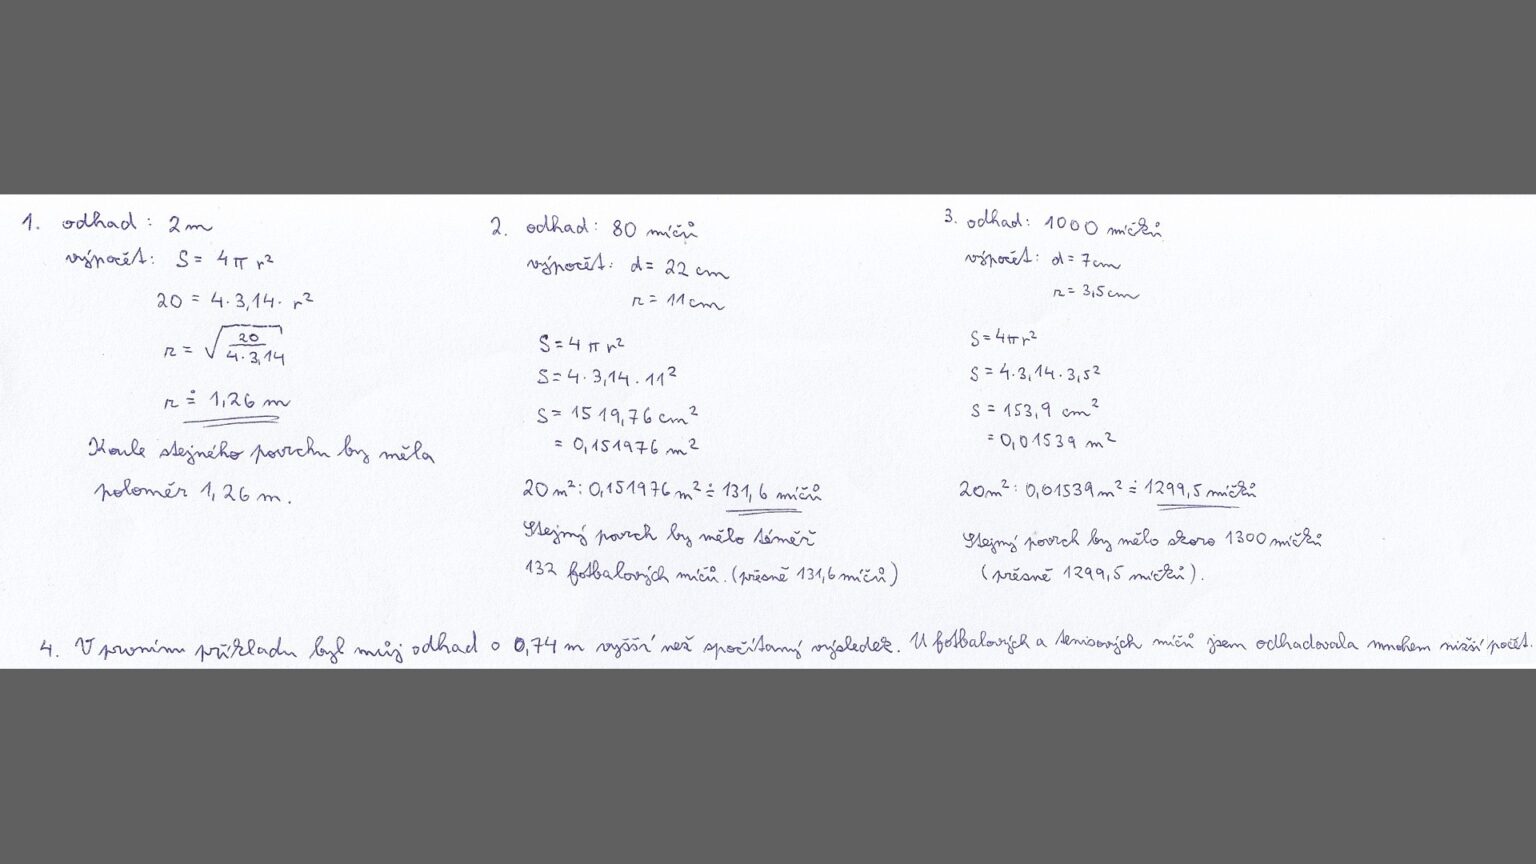 1. odhad: 2m
výpočet: S = 4πr²
20 = 4·3,14·r²
r = √(20/(4·3,14))
r ≐ 1,26 m
Koule stejného povrchu by měla
poloměr 1,26 m.
2. odhad: 80 míčů
výpočet: d = 22 cm
r = 11 cm
S = 4πr²
S = 4·3,14·11²
S = 1519,76 cm²
= 0,151976 m²
20 m² : 0,151976 m² ≐ 131,6 míčů
Stejný povrch by mělo téměř
132 fotbalových míčů. (přesně 131,6 míčů)
3. odhad: 1000 míčků
výpočet: d = 7cm
r = 3,5cm
S = 4πr²
S = 4·3,14·3,5²
S = 153,9 cm²
= 0,01539 m²
20m² : 0,01539m² ≐ 1299,5 míčků
Stejný povrch by mělo skoro 1300 míčků
(přesně 1299,5 míčků).
4. V prvním příkladu byl můj odhad o 0,74 m vyšší než spočítaný výsledek. U fotbalových a tenisových míčů jsem odhadovala mnohem nižší počet.